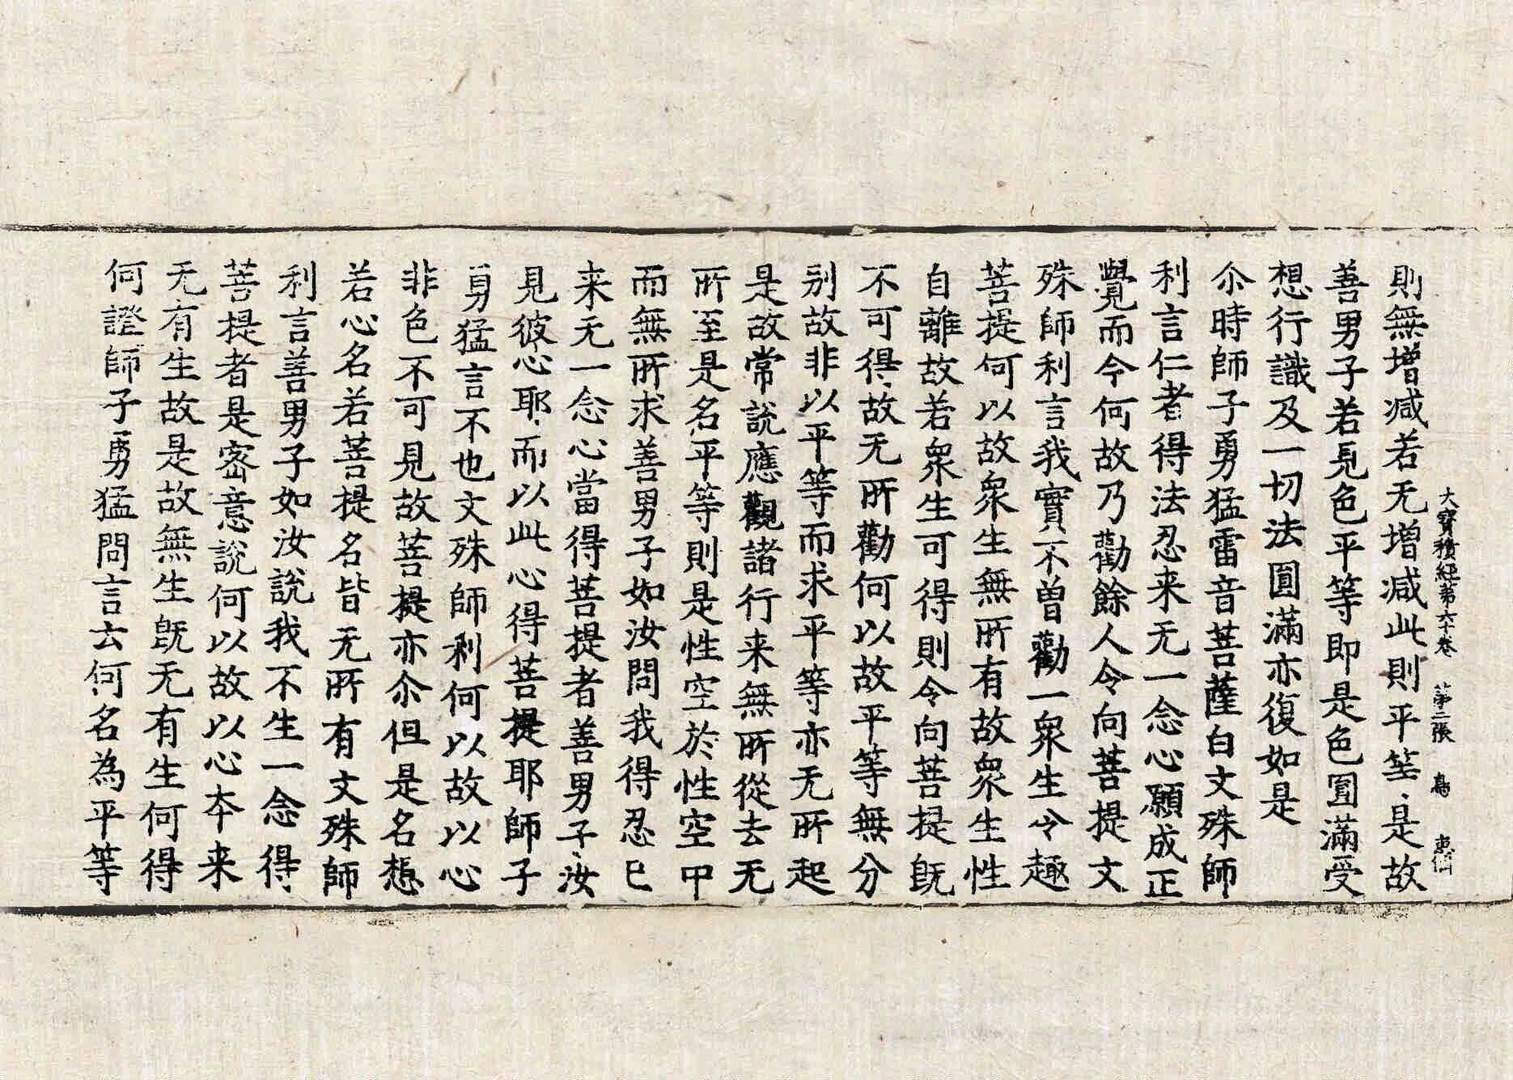 大寶積經第六十卷 第二張 鳥 惠
則無增減若无增減此則平等是故
善男子若見色平等即是色圓滿受
想行識及一切法圓滿亦復如是
尒時師子勇猛雷音菩薩白文殊師
利言仁者得法忍来无一念心願成正
覺而今何故乃勸餘人令向菩提文
殊師利言我實不曾勸一衆生令趣
菩提何以故衆生無所有故衆生性
自離故若衆生可得則令向菩提旣
不可得故无所勸何以故平等無分
别故非以平等而求平等亦无所起
是故常說應觀諸行来無所從去无
所至是名平等則是性空於性空中
而無所求善男子如汝問我得忍已
来无一念心當得菩提者善男子汝
見彼心耶而以此心得菩提耶師子
勇猛言不也文殊師利何以故以心
非色不可見故菩提亦尒但是名想
若心名若菩提名皆无所有文殊師
利言善男子如汝說我不生一念得
菩提者是密意說何以故以心本来
无有生故是故無生旣无有生何得
何證師子勇猛問言云何名為平等